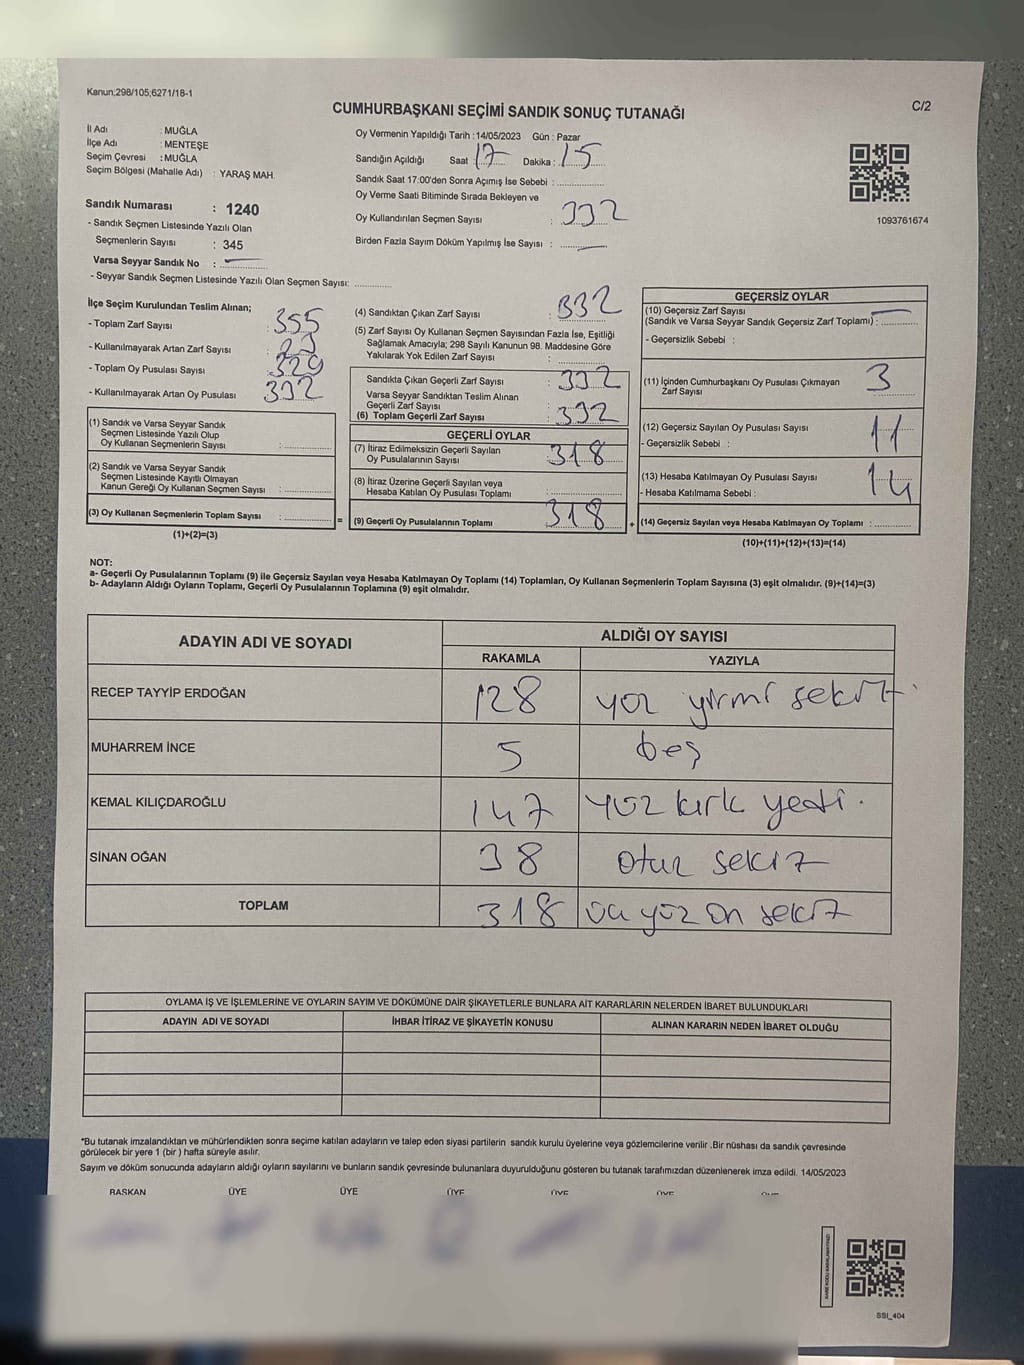 Kanun;298/105;6271/18-1
C/2
CUMHURBAŞKANI SEÇİMİ SANDIK SONUÇ TUTANAĞI
İl Adı : MUĞLA
İlçe Adı : MENTEŞE
Seçim Çevresi : MUĞLA
Seçim Bölgesi (Mahalle Adı) : YARAŞ MAH.
Sandık Numarası : 1240
- Sandık Seçmen Listesinde Yazılı Olan
Seçmenlerin Sayısı : 345
Varsa Seyyar Sandık No :
- Seyyar Sandık Seçmen Listesinde Yazılı Olan Seçmen Sayısı:
Oy Vermenin Yapıldığı Tarih : 14/05/2023 Gün : Pazar
Sandığın Açıldığı Saat : 17 Dakika : 15
Sandık Saat 17:00'den Sonra Açımış İse Sebebi :
Oy Verme Saati Bitiminde Sırada Bekleyen ve
Oy Kullandırılan Seçmen Sayısı : 332
Birden Fazla Sayım Döküm Yapılmış İse Sayısı :
1093761674
İlçe Seçim Kurulundan Teslim Alınan;
- Toplam Zarf Sayısı : 355
- Kullanılmayarak Artan Zarf Sayısı : 23
- Toplam Oy Pusulası Sayısı
- Kullanılmayarak Artan Oy Pusulası : 332
(1) Sandık ve Varsa Seyyar Sandık
Seçmen Listesinde Yazılı Olup
Oy Kullanan Seçmenlerin Sayısı :
(2) Sandık ve Varsa Seyyar Sandık
Seçmen Listesinde Kayıtlı Olmayan
Kanun Gereği Oy Kullanan Seçmen Sayısı :
(3) Oy Kullanan Seçmenlerin Toplam Sayısı :
(1)+(2)=(3)
=
(4) Sandıktan Çıkan Zarf Sayısı : 332
(5) Zarf Sayısı Oy Kullanan Seçmen Sayısından Fazla İse, Eşitliği
Sağlamak Amacıyla; 298 Sayılı Kanunun 98. Maddesine Göre
Yakılarak Yok Edilen Zarf Sayısı :
Sandıkta Çıkan Geçerli Zarf Sayısı : 332
Varsa Seyyar Sandıktan Teslim Alınan
Geçerli Zarf Sayısı :
(6) Toplam Geçerli Zarf Sayısı : 332
GEÇERLİ OYLAR
(7) İtiraz Edilmeksizin Geçerli Sayılan
Oy Pusulalarının Sayısı : 318
(8) İtiraz Üzerine Geçerli Sayılan veya
Hesaba Katılan Oy Pusulası Toplamı
(9) Geçerli Oy Pusulalarının Toplamı 318
+
GEÇERSİZ OYLAR
(10) Geçersiz Zarf Sayısı
(Sandık ve Varsa Seyyar Sandık Geçersiz Zarf Toplamı) :
- Geçersizlik Sebebi :
(11) İçinden Cumhurbaşkanı Oy Pusulası Çıkmayan 3
Zarf Sayısı
(12) Geçersiz Sayılan Oy Pusulası Sayısı 11
- Geçersizlik Sebebi :
(13) Hesaba Katılmayan Oy Pusulası Sayısı 14
- Hesaba Katılmama Sebebi :
(14) Geçersiz Sayılan veya Hesaba Katılmayan Oy Toplamı :
(10)+(11)+(12)+(13)=(14)
NOT:
a- Geçerli Oy Pusulalarının Toplamı (9) ile Geçersiz Sayılan veya Hesaba Katılmayan Oy Toplamı (14) Toplamları, Oy Kullanan Seçmenlerin Toplam Sayısına (3) eşit olmalıdır. (9)+(14)=(3)
b- Adayların Aldığı Oyların Toplamı, Geçerli Oy Pusulalarının Toplamına (9) eşit olmalıdır.
ADAYIN ADI VE SOYADI
ALDIĞI OY SAYISI
RAKAMLA YAZIYLA
RECEP TAYYİP ERDOĞAN 128 yüz yirmi sekiz
MUHARREM İNCE 5 beş
KEMAL KILIÇDAROĞLU 147 yüz kırk yedi.
SİNAN OĞAN 38 otuz sekiz
TOPLAM 318 üç yüz on sekiz
OYLAMA İŞ VE İŞLEMLERİNE VE OYLARIN SAYIM VE DÖKÜMÜNE DAİR ŞİKAYETLERLE BUNLARA AİT KARARLARIN NELERDEN İBARET BULUNDUKLARI
ADAYIN ADI VE SOYADI İHBAR İTİRAZ VE ŞİKAYETİN KONUSU ALINAN KARARIN NEDEN İBARET OLDUĞU
*Bu tutanak imzalandıktan ve mühürlendikten sonra seçime katılan adayların ve talep eden siyasi partilerin sandık kurulu üyelerine veya gözlemcilerine verilir .Bir nüshası da sandık çevresinde
görülecek bir yere 1 (bir ) hafta süreyle asılır.
Sayım ve döküm sonucunda adayların aldığı oyların sayılarını ve bunların sandık çevresinde bulunanlara duyurulduğunu gösteren bu tutanak tarafımızdan düzenlenerek imza edildi. 14/05/2023
BAŞKAN ÜYE ÜYE ÜYE ÜYE ÜYE
SSI_404